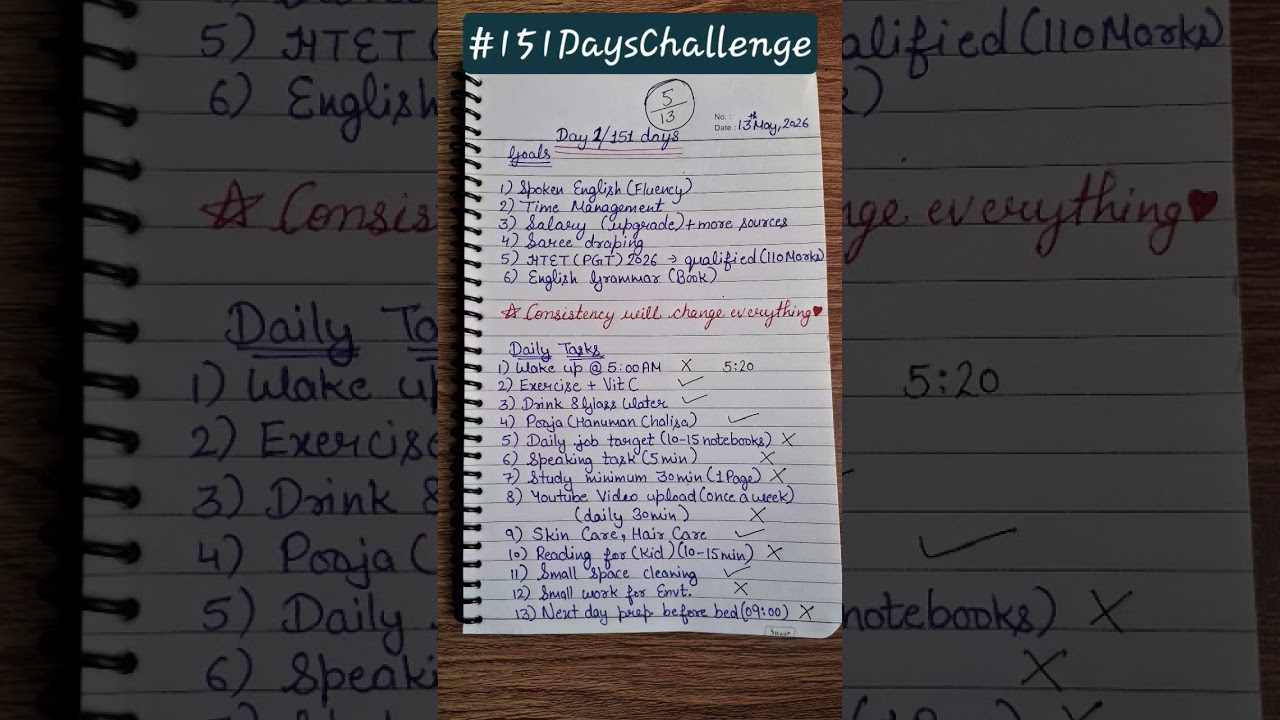 #151DaysChallenge
5/13
No. :
Date : 13th May, 2026
Day 1/151 days
Goals
1) Spoken English (Fluency)
2) Time Management
3) Salary (upgrade) + more sources
4) Saree draping
5) HTET (PGT) 2026 → qualified (110 Marks)
6) English Grammar (Book)
☆ Consistency will change everything ♥
Daily Tasks
1) Wake up @ 5:00 AM X 5:20
2) Exercise + Vit C ✓
3) Drink 8 Glass Water ✓
4) Pooja (Hanuman Chalisa) ✓
5) Daily job target (10-15 notebooks) X
6) Speaking task (5 min) X
7) Study minimum 30 min (1 Page) X
8) Youtube Video upload (once a week)
(daily 30 min) X
9) Skin Care, Hair Care ✓
10) Reading for (Kid) (10-15 min) X
11) Small space cleaning ✓
12) Small work for Envt. X
13) Next day prep before bed (09:00) X
5) HTET (
alified (110 Marks)
6) English
k)
☆ Consis
nge everything ♥
Daily Ta
1) Wake up
5:20
2) Exercise
3) Drink 8
4) Pooja (
✓
5) Daily
notebooks) X
6) Speaki
X